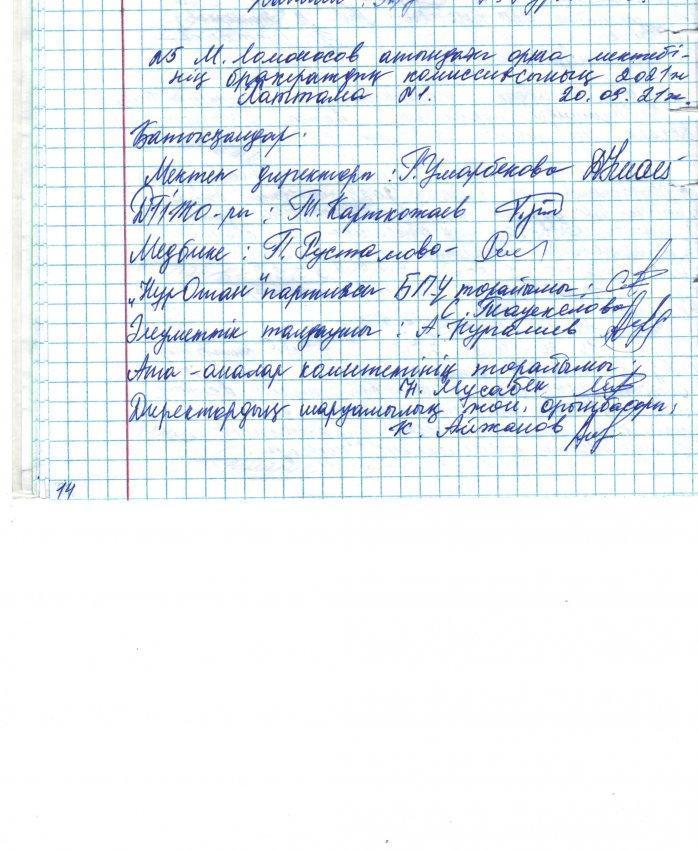 №5 М. Ломоносов атындағы орта мектебі-
нің бракераждық комиссиясының 2021ж
Хаттама №1. 20.09.21ж.
Қатысқандар:
Мектеп директоры: Г. Умарбекова
ДТІЖО-ры: Т. Карткожаев
Медбике: П. Рустамова-
„НұрОтан" партиясы БПҰ төрайымы:
С. Тауекелова
Әлеуметтік талдаушы: А. Нурғалиев
Ата-аналар комитетінің төрайымы:
Н. Мусабек
Директордың шаруашылық жөн. орынбасары:
К. Айжанов
14